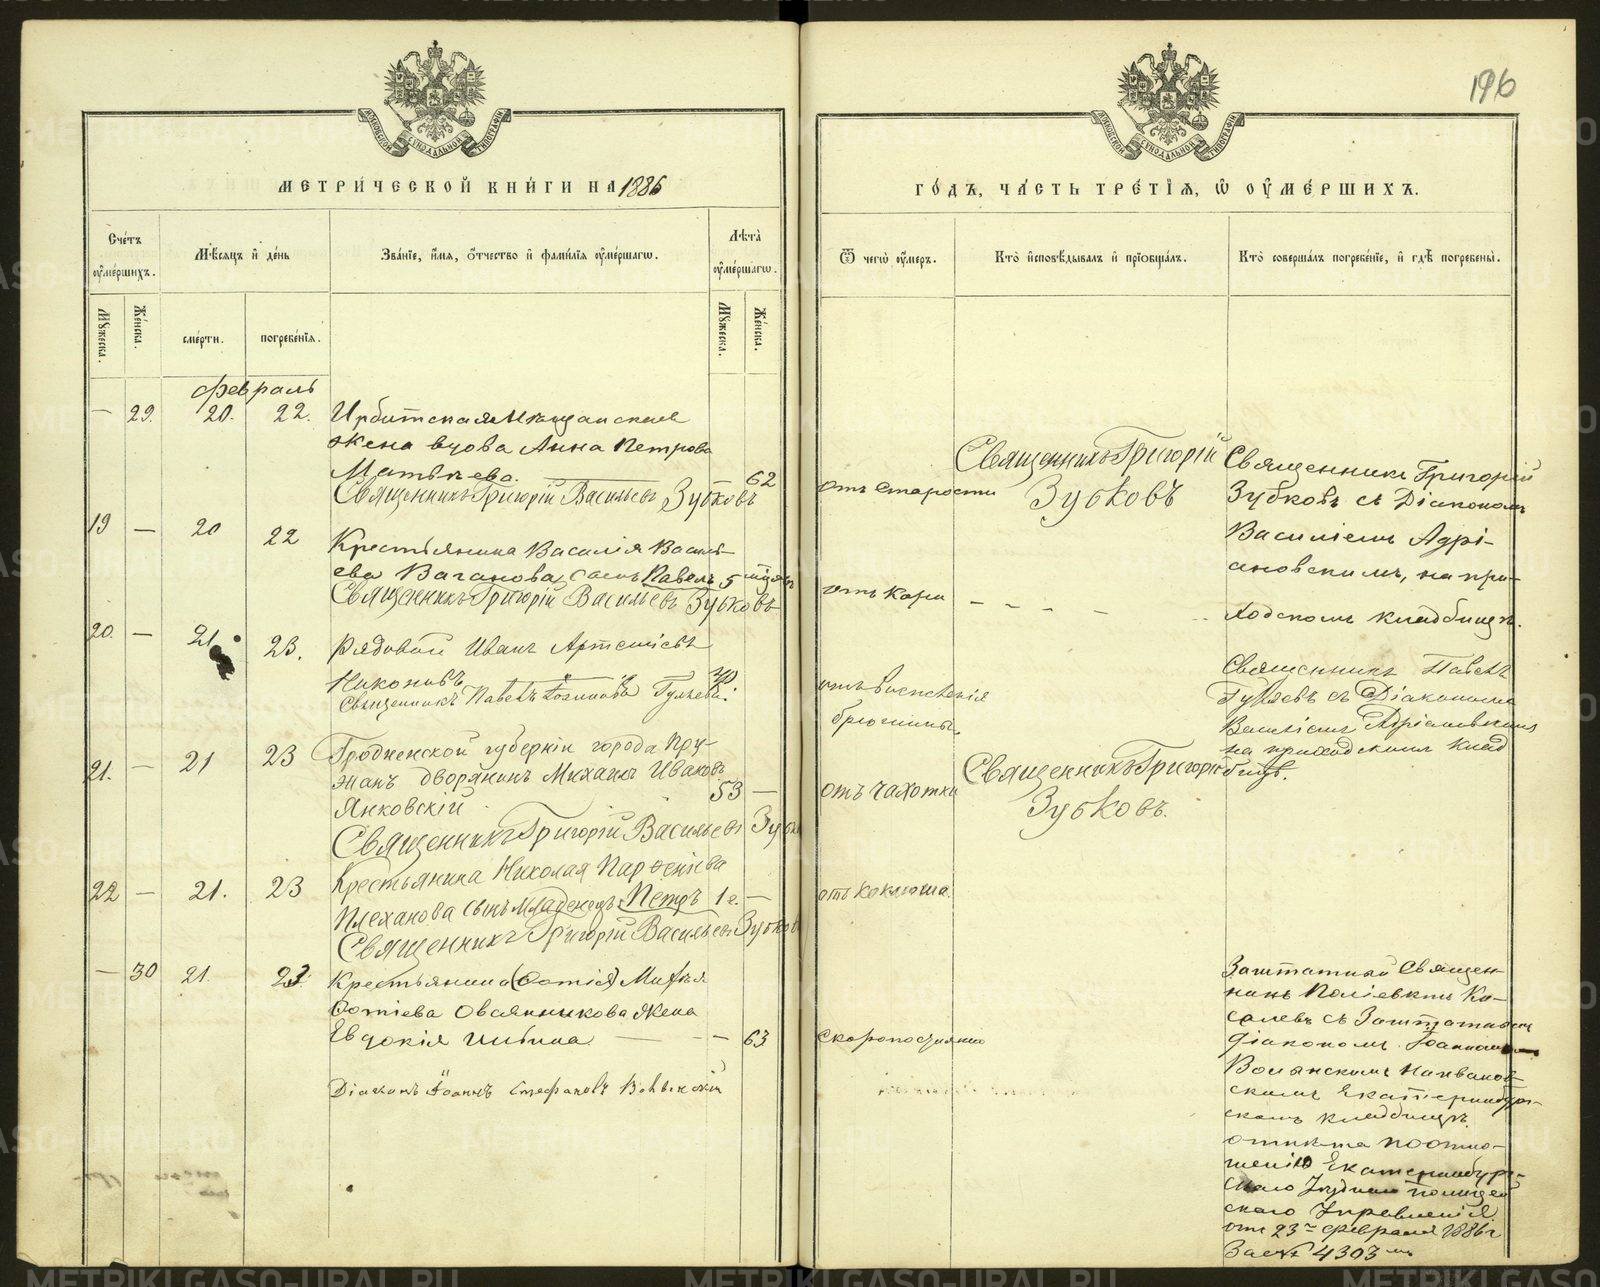 196
МЕТРИЧЕСКОЙ КНИГИ НА 1886
ГОДЪ, ЧАСТЬ ТРЕТІЯ, Ѽ ОУМЕРШИХЪ.
Счетъ оумершихъ.
Мѣсяцъ и день
Званіе, имя, отчество и фамилія оумершагѡ.
Лѣта оумершагѡ.
Ѿ чегѡ оумеръ.
Кто исповѣдывалъ и пріобщалъ.
Кто совершалъ погребеніе, и гдѣ погребены.
Мужеска.
Женска.
смерти.
погребенія.
Мужеска.
Женска.
Февраль
— 29. 20. 22. Ирбитская Мѣщанская
жена вдова Анна Петрова
Матвѣева. 62
Священникъ Григорій Васильевъ Зубковъ
отъ старости
Священникъ Григорій
Зубковъ
Священникъ Григорій
Зубковъ съ Діакономъ
Василіемъ Адрі-
ановскимъ, на при-
ходскомъ кладбищѣ.
19 — 20 22 Крестьянина Василія Василь-
ева Ваганова сынъ Павелъ 5
Священникъ Григорій Васильевъ Зубковъ
отъ кори
20. — 21. 23. Рядовой Иванъ Артеміевъ
Никоновъ
Священникъ Павелъ Гуляевъ.
отъ воспаленія
брюшины.
Священникъ Павелъ
Гуляевъ съ Діакономъ
Василіемъ Адріановскимъ
на приходскомъ клад
бищѣ.
21. — 21 23 Гродненской губерніи города Пру-
жанъ дворянинъ Михаилъ Ивановъ
Янковскій 53 —
Священникъ Григорій Васильевъ Зубк
отъ чахотки
Священникъ Григорій
Зубковъ.
22 — 21. 23 Крестьянина Николая Парѳеніева
Плеханова сынъ младенецъ Петръ 1 г. —
Священникъ Григорій Васильевъ Зубков
отъ коклюша.
— 30 21. 23. Крестьянина (Фотія)
Фотіева Овсянникова жена
Евдокія 63
Діаконъ Іоаннъ Стефановъ Волынскій
скоропостижно
Заштатный Священ
никъ Поліевктъ Ко-
селевъ съ Заштатнымъ
Діакономъ Іоанномъ
Волынскимъ
скомъ Екатеринбург-
скомъ кладбищѣ.
отпѣта по отно-
шенію Екатеринбург-
скаго Уѣзднаго Полицей
скаго Управленія
отъ 23го февраля 1886 г
За № 4303мъ